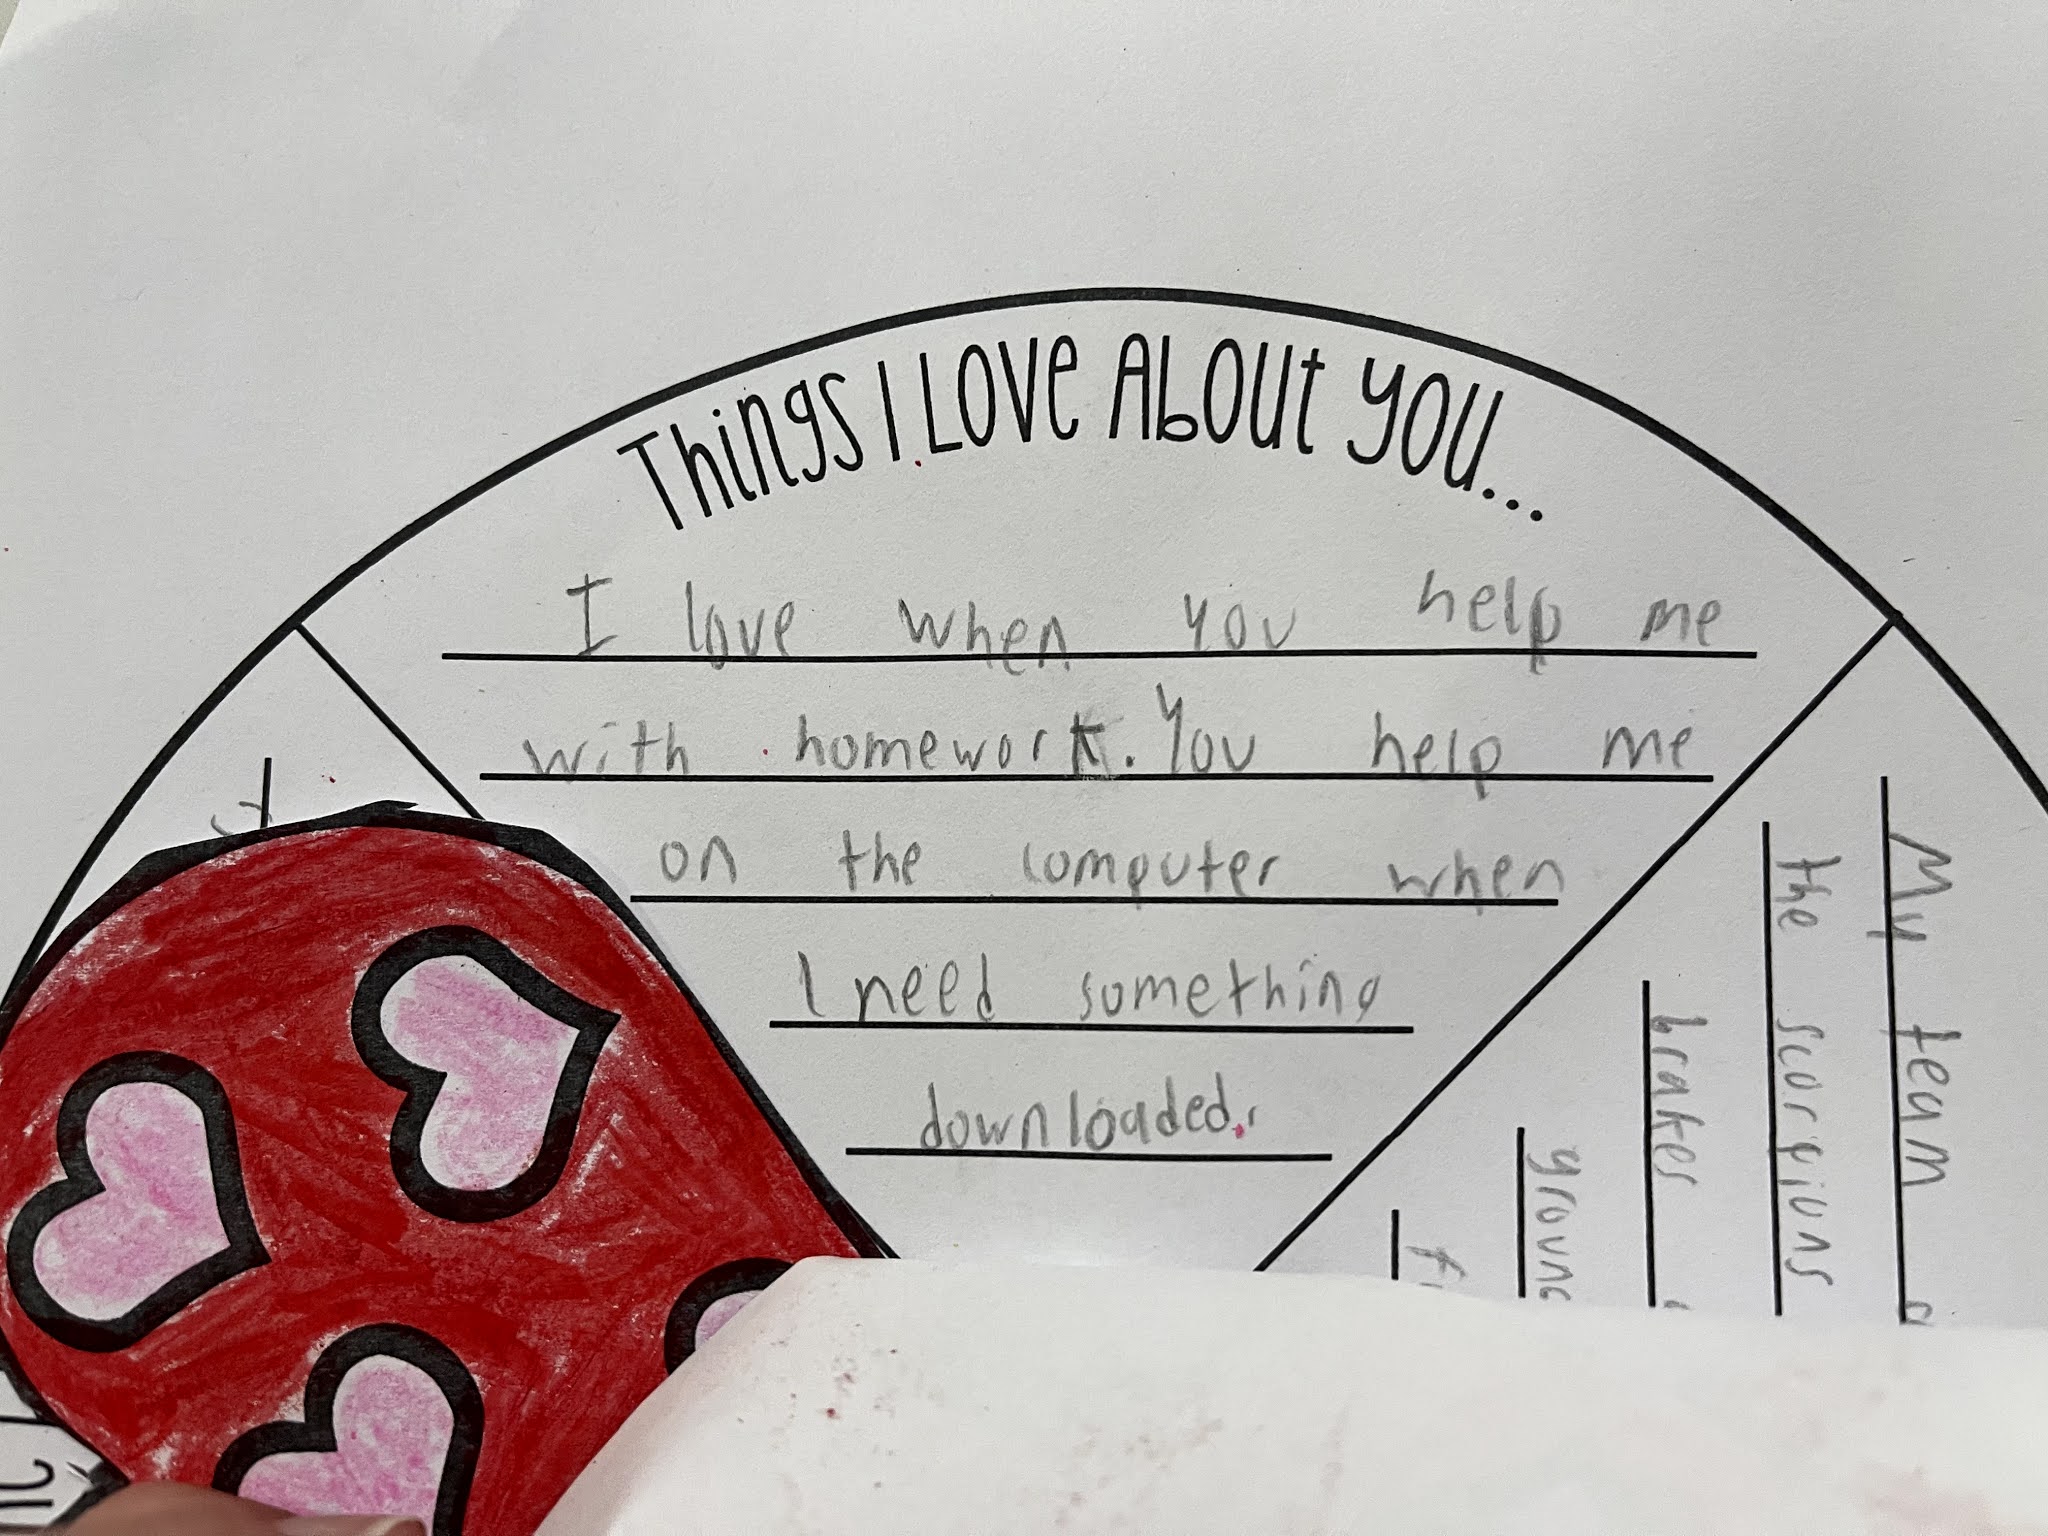 Things I Love About You...
I love when you help me
with homework. You help me
on the computer when
I need something
downloaded.
My team
the scorpions
brakes